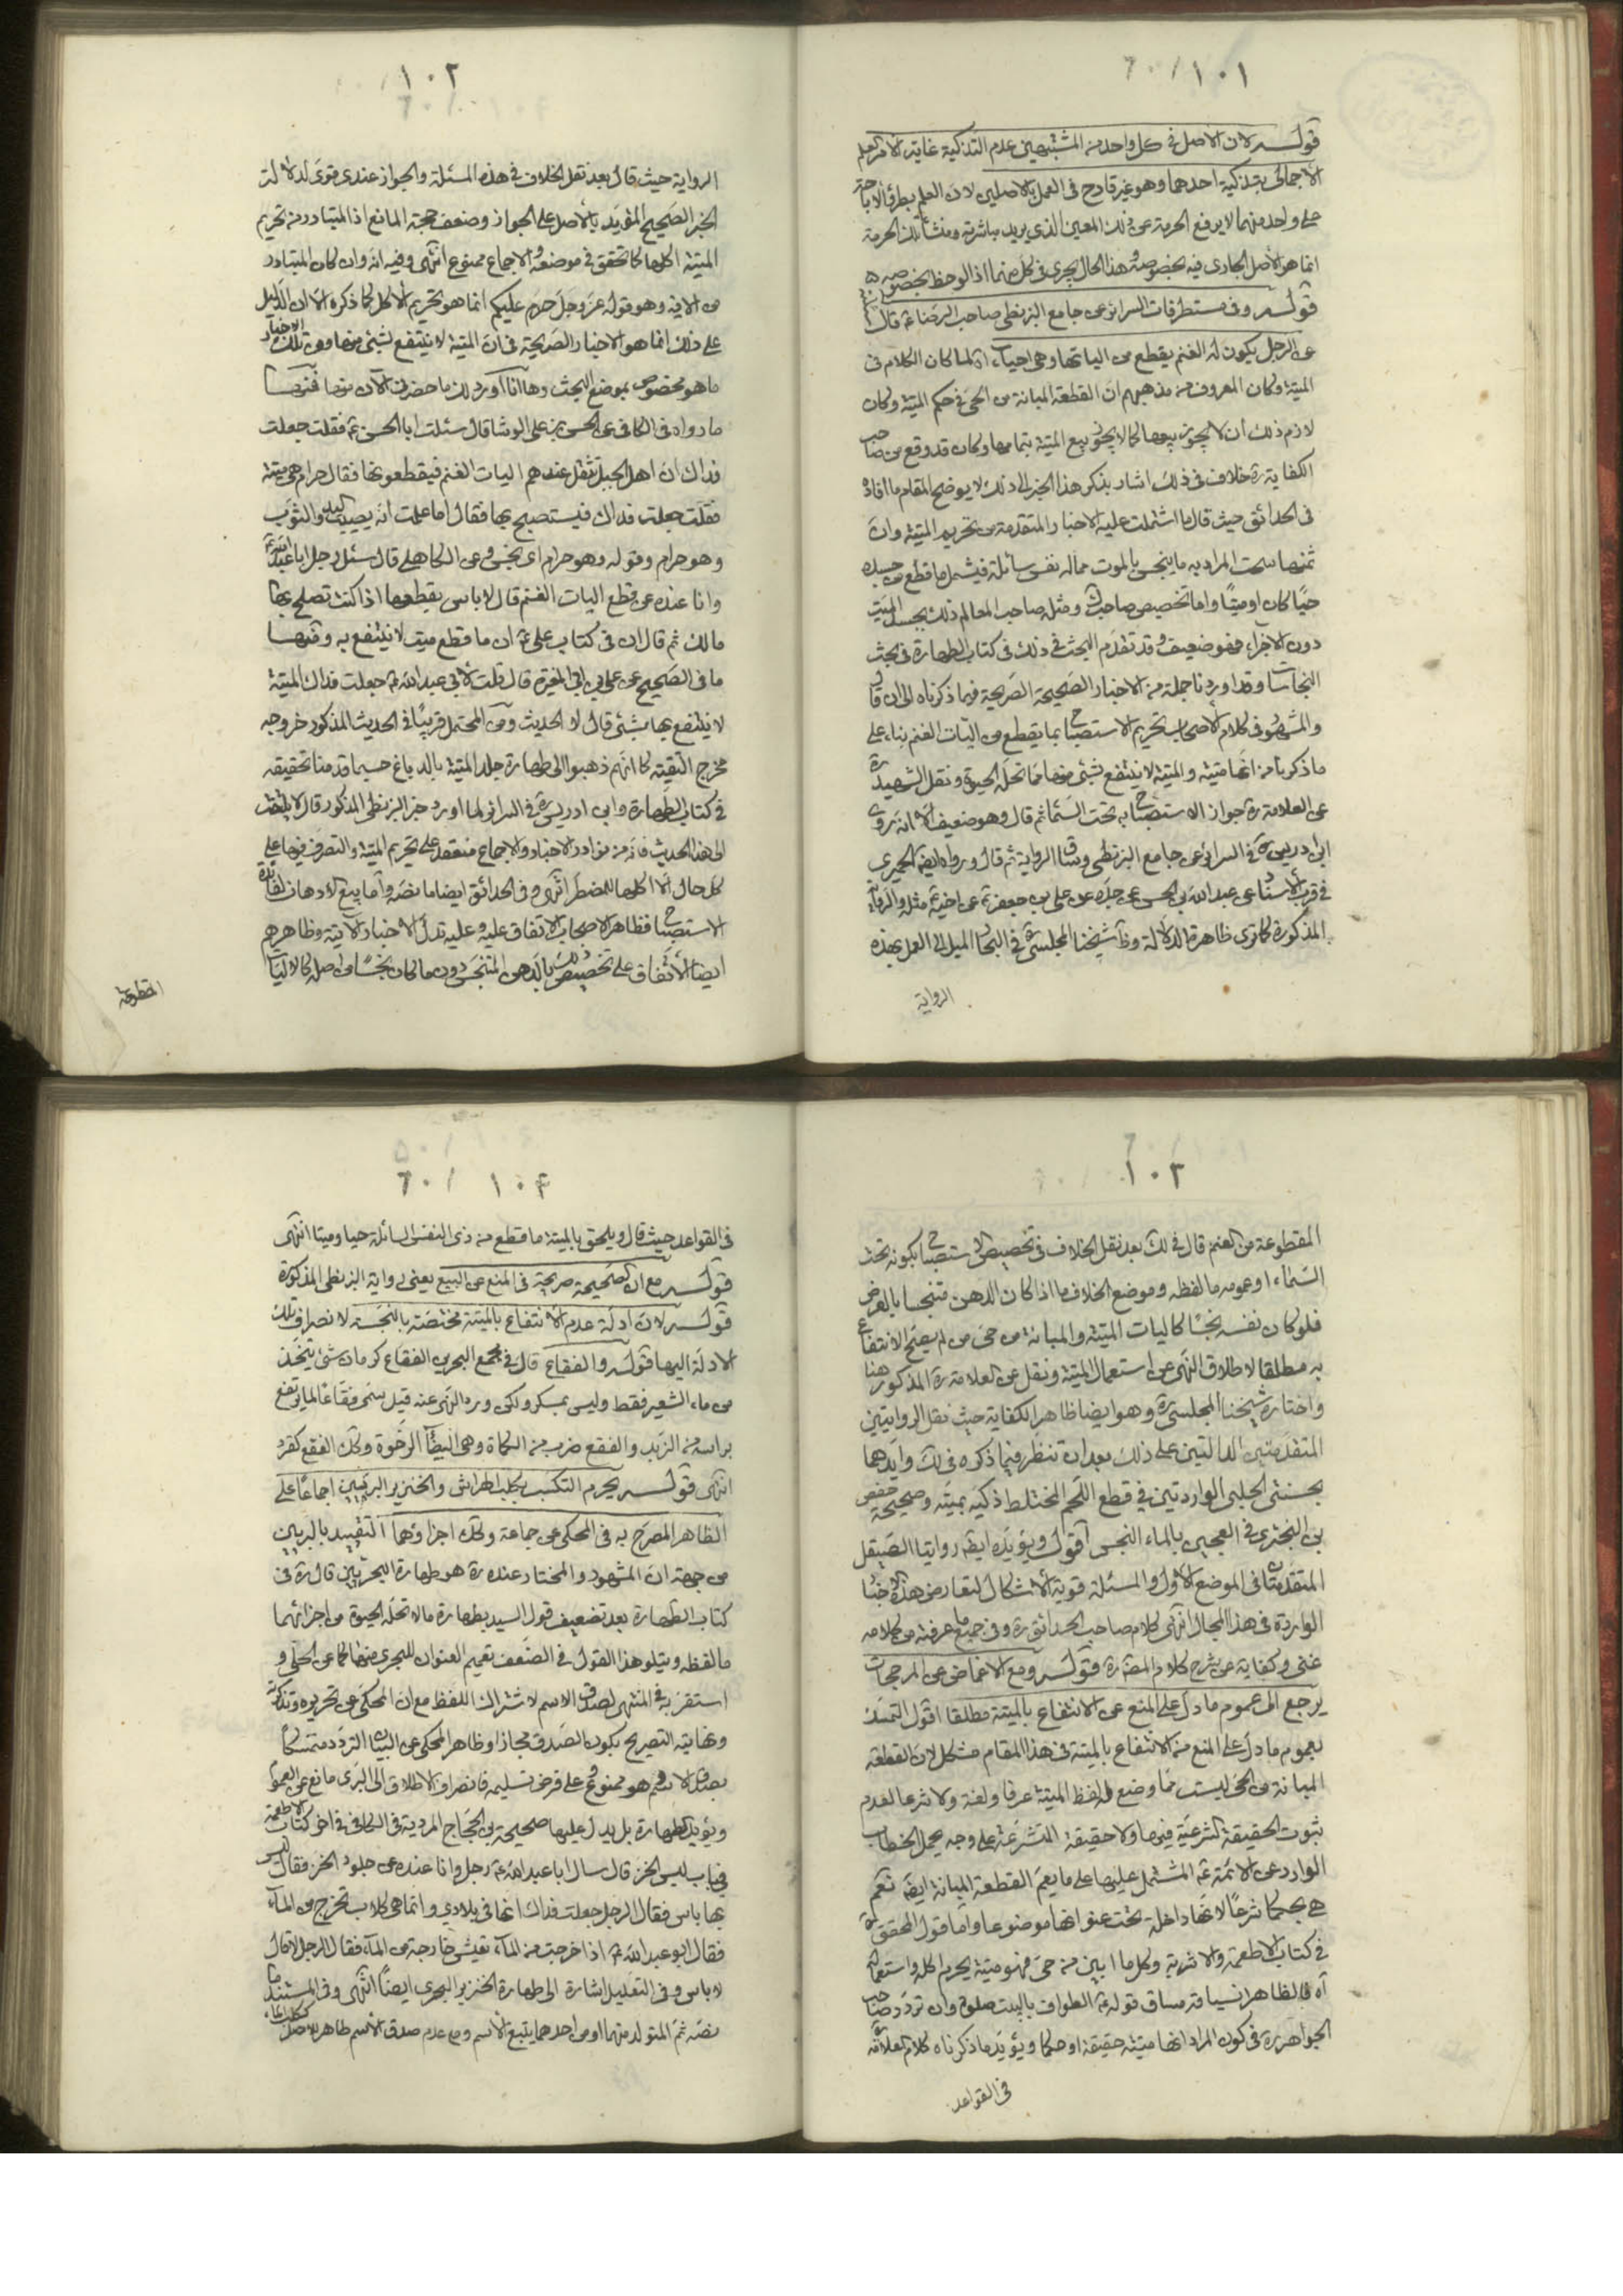 ١٠١
قوله لان الاصل في كل واحد من المشتبهين عدم التذكية غاية الامر العلم
الاجمالي بتذكية احدهما وهو غير قادح في العمل بالاصلين لان العلم بطرو الاباحة
على واحد منهما لا يرفع الحرمة عن ذلك المعين الذي يريد مباشرته ومنشأ تلك الحرمة
انما هو الاصل الجاري فيه بخصوصه وهذا الحال يجري في كل منهما اذا لوحظ بخصوصه
قوله وفي مستطرفات السرائر عن جامع البزنطي صاحب الرضا ع قال
عن الرجل يكون له الغنم يقطع من الياتها وهي احياء اه لما كان الكلام في
الميتة وكان المعروف من مذهبهم ان القطعة المبانة من الحي في حكم الميتة وكان
لازم ذلك ان لا يجوز بيعها كما لا يجوز بيع الميتة بتمامها وكان قد وقع من صاحب
الكفاية ره خلاف في ذلك اشار بذكر هذا الخبر الى ذلك لا يوضح المقام ما افاده
في الحدائق حيث قال ما اشتملت عليه الاخبار المتقدمة من تحريم الميتة وان
ثمنها سحت المراد به ما ينجس بالموت مما له نفس سائلة فيشمل ما قطع من جسده
حيا كان او ميتا واما تخصيص صاحب ومثله صاحب المعالم ذلك بجسد الميت
دون الاجزاء فهو ضعيف وقد تقدم البحث في ذلك في كتاب الطهارة في بحث
النجاسات وقد اوردنا جملة من الاخبار الصحيحة الصريحة فيما ذكرناه الى ان قال
والمشهور في كلام الاصحاب تحريم الاستصباح بما يقطع من اليات الغنم بناء على
ما ذكرنا من انها ميتة والميتة لا ينتفع بشئ منها مما تحله الحيوة ونقل الشهيد ره
عن العلامة ره جواز الاستصباح به تحت السماء ثم قال وهو ضعيف الا انه روى
ابن ادريس ره في السرائر عن جامع البزنطي وساق الرواية ثم قال ورواه ايضا الحميري
في قرب الاسناد عن عبد الله بن الحسن عن جده عن علي بن جعفر ع عن اخيه ع مثله والرواية
المذكورة كما ترى ظاهرة الدلالة وظ شيخنا المجلسي ره في البحار الميل الى العمل بهذه
الرواية
١٠٢
الرواية حيث قال بعد نقل الخلاف في هذه المسئلة والجواز عندي قوي لدلالة
الخبر الصحيح المؤيد بالاصل على الجواز وضعف حجة المانع اذ المتبادر من تحريم
الميتة اكلها كما تحقق في موضعه والاجماع ممنوع انتهى وفيه انه وان كان المتبادر
من الاية وهو قوله عز وجل حرم عليكم انما هو تحريم الاكل كما ذكره الا ان الدليل
على ذلك انما هو الاخبار الصريحة في ان الميتة لا ينتفع بشئ منها ومن تلك الاخبار
ما هو مخصوص بموضع البحث وها انا اورد لك ما حضرني الآن منها فمنها
ما رواه في الكافي عن الحسن بن علي الوشا قال سئلت ابا الحسن ع فقلت جعلت
فداك ان اهل الجبل تثقل عندهم اليات الغنم فيقطعونها فقال حرام هي ميتة
فقلت جعلت فداك فيستصبح بها فقال اما علمت انه يصيب اليد والثوب
وهو حرام وقوله وهو حرام اي نجس وعن الكاهلي قال سئل رجل ابا عبد الله ع
وانا عنده عن قطع اليات الغنم قال لا باس بقطعها اذا كنت تصلح بها
مالك ثم قال ان في كتاب علي ع ان ما قطع ميت لا ينتفع به ومنها
ما في الصحيح عن علي بن ابي المغيرة قال قلت لابي عبد الله ع جعلت فداك الميتة
لا ينتفع بها بشئ قال لا الحديث ومن المحتمل قريبا في الحديث المذكور خروجه
مخرج التقية كما انهم ذهبوا الى طهارة جلد الميتة بالدباغ حسبما قدمنا تحقيقه
في كتاب الطهارة وابن ادريس ره في السرائر لما اورد خبر البزنطي المذكور قال لا يلتفت
الى هذا الحديث فانه من نوادر الاخبار والاجماع منعقد على تحريم الميتة والتصرف فيها على
كل حال الا اكلها للمضطر انتهى وفي الحدائق ايضا ما نصه واما بيع الادهان لفائدة
الاستصباح فظاهر الاصحاب الاتفاق عليه وعليه تدل الاخبار الآتية وظاهرهم
ايضا الاتفاق على تخصيص ذلك بالدهن المتنجس دون ما كان نجسا من اصله كالاليات
المقطوعة
١٠٣
المقطوعة من الغنم قال في لك بعد نقل الخلاف في تخصيص الاستصباح بكونه تحت
السماء او عمومه ما لفظه وموضع الخلاف ما اذا كان الدهن متنجسا بالعرض
فلو كان نفسه نجسا كاليات الميتة والمبانة من حي لم يصح الانتفاع
به مطلقا لاطلاق النهي عن استعمال الميتة ونقل عن العلامة ره المذكور هنا
واختاره شيخنا المجلسي ره وهو ايضا ظاهر الكفاية حيث نقل الروايتين
المتقدمتين الدالتين على ذلك بعد ان تنظر فيما ذكره في لك وايدهما
بحسنتي الحلبي الواردتين في قطع اللحم المختلط ذكيه بميته وصحيحة حفص
بن البختري في العجين بالماء النجس اقول ويؤيده ايضا روايتا الصيقل
المتقدمتان في الموضع الاول والمسئلة قوية الاشكال لتعارض هذه الاخبار
الواردة في هذا المجال انتهى كلام صاحب الحدائق ره وفي جميع ما عرفته من كلامه
غنى وكفاية عن شرح كلام المصنف ره قوله ومع الاغماض عن المرجحات
يرجع الى عموم ما دل على المنع عن الانتفاع بالميتة مطلقا اقول التمسك
بعموم ما دل على المنع من الانتفاع بالميتة في هذا المقام مشكل لان القطعة
المبانة من الحي ليست مما وضع له لفظ الميتة عرفا ولغة ولا شرعا لعدم
ثبوت الحقيقة الشرعية فيها ولا حقيقة المتشرعة على وجه يحمل الخطاب
الوارد عن الائمة ع المشتمل عليها على ما يعم القطعة المبانة ايضا نعم
هي بحكمها شرعا لا انها داخلة تحت عنوانها موضوعا واما قول المحقق ره
في كتاب الاطعمة والاشربة وكل ما ابين من حي فهو ميتة يحرم اكله واستعماله
اه فالظاهر انسياقه مساق قوله ع الطواف بالبيت صلوة وان تردد صاحب
الجواهر ره في كون المراد انها ميتة حقيقة او حكما ويؤيد ما ذكرناه كلام العلامة ره
في القواعد
١٠۴
في القواعد حيث قال ويلحق بالميتة ما قطع من ذي النفس السائلة حيا وميتا انتهى
قوله مع ان الصحيحة صريحة في المنع عن البيع يعني رواية البزنطي المذكورة
قوله لان ادلة عدم الانتفاع بالميتة مختصة بالنجسة لانصراف تلك
الادلة اليها قوله والفقاع قال في مجمع البحرين الفقاع كرمان شئ يتخذ
من ماء الشعير فقط وليس بمسكر ولكن ورد النهي عنه قيل سمي فقاعا لما يرتفع
براسه من الزبد والفقع ضرب من الكماة وهي البيضاء الرخوة وكك الفقع كقرد
انتهى قوله يحرم التكسب بكلب الهراش والخنزير البريين اجماعا على
الظاهر المصرح به في المحكي عن جماعة وكك اجزاؤهما التقييد بالبريين
من جهة ان المشهور والمختار عنده ره هو طهارة البحريين قال ره في
كتاب الطهارة بعد تضعيف قول السيد بطهارة ما لا تحله الحيوة من اجزائهما
ما لفظه ويتلو هذا القول في الضعف تعميم العنوان للبحري منهما كما عن الحلي و
استقربه في المنتهى لصدق الاسم لاشتراك اللفظ مع ان المحكي عن تحريره وتذكرته
ونهايته التصريح بكون الصدق مجازا وظاهر المحكي عن البيان التردد متمسكا
بصدق الاسم وهو ممنوع وعلى فرض تسليمه فانصراف الاطلاق الى البري مانع عن العموم
ويؤيد الطهارة بل يدل عليها صحيحة بن الحجاج المروية في الكافي في اخر كتاب الاطعمة
في باب لبس الخز قال سال ابا عبد الله ع رجل وانا عنده عن جلود الخز فقال ليس
بها باس فقال الرجل جعلت فداك انها في بلادي وانما هي كلاب تخرج من الماء
فقال ابو عبد الله ع اذا خرجت من الماء تعيش خارجة من الماء فقال الرجل لا قال
لا باس وفي التعليل اشارة الى طهارة الخنزير البحري ايضا انتهى وفي المستند ما
نصه ثم المتولد منهما او من احدهما يتبع الاسم ومع عدم صدق الاسم طاهر للاصل